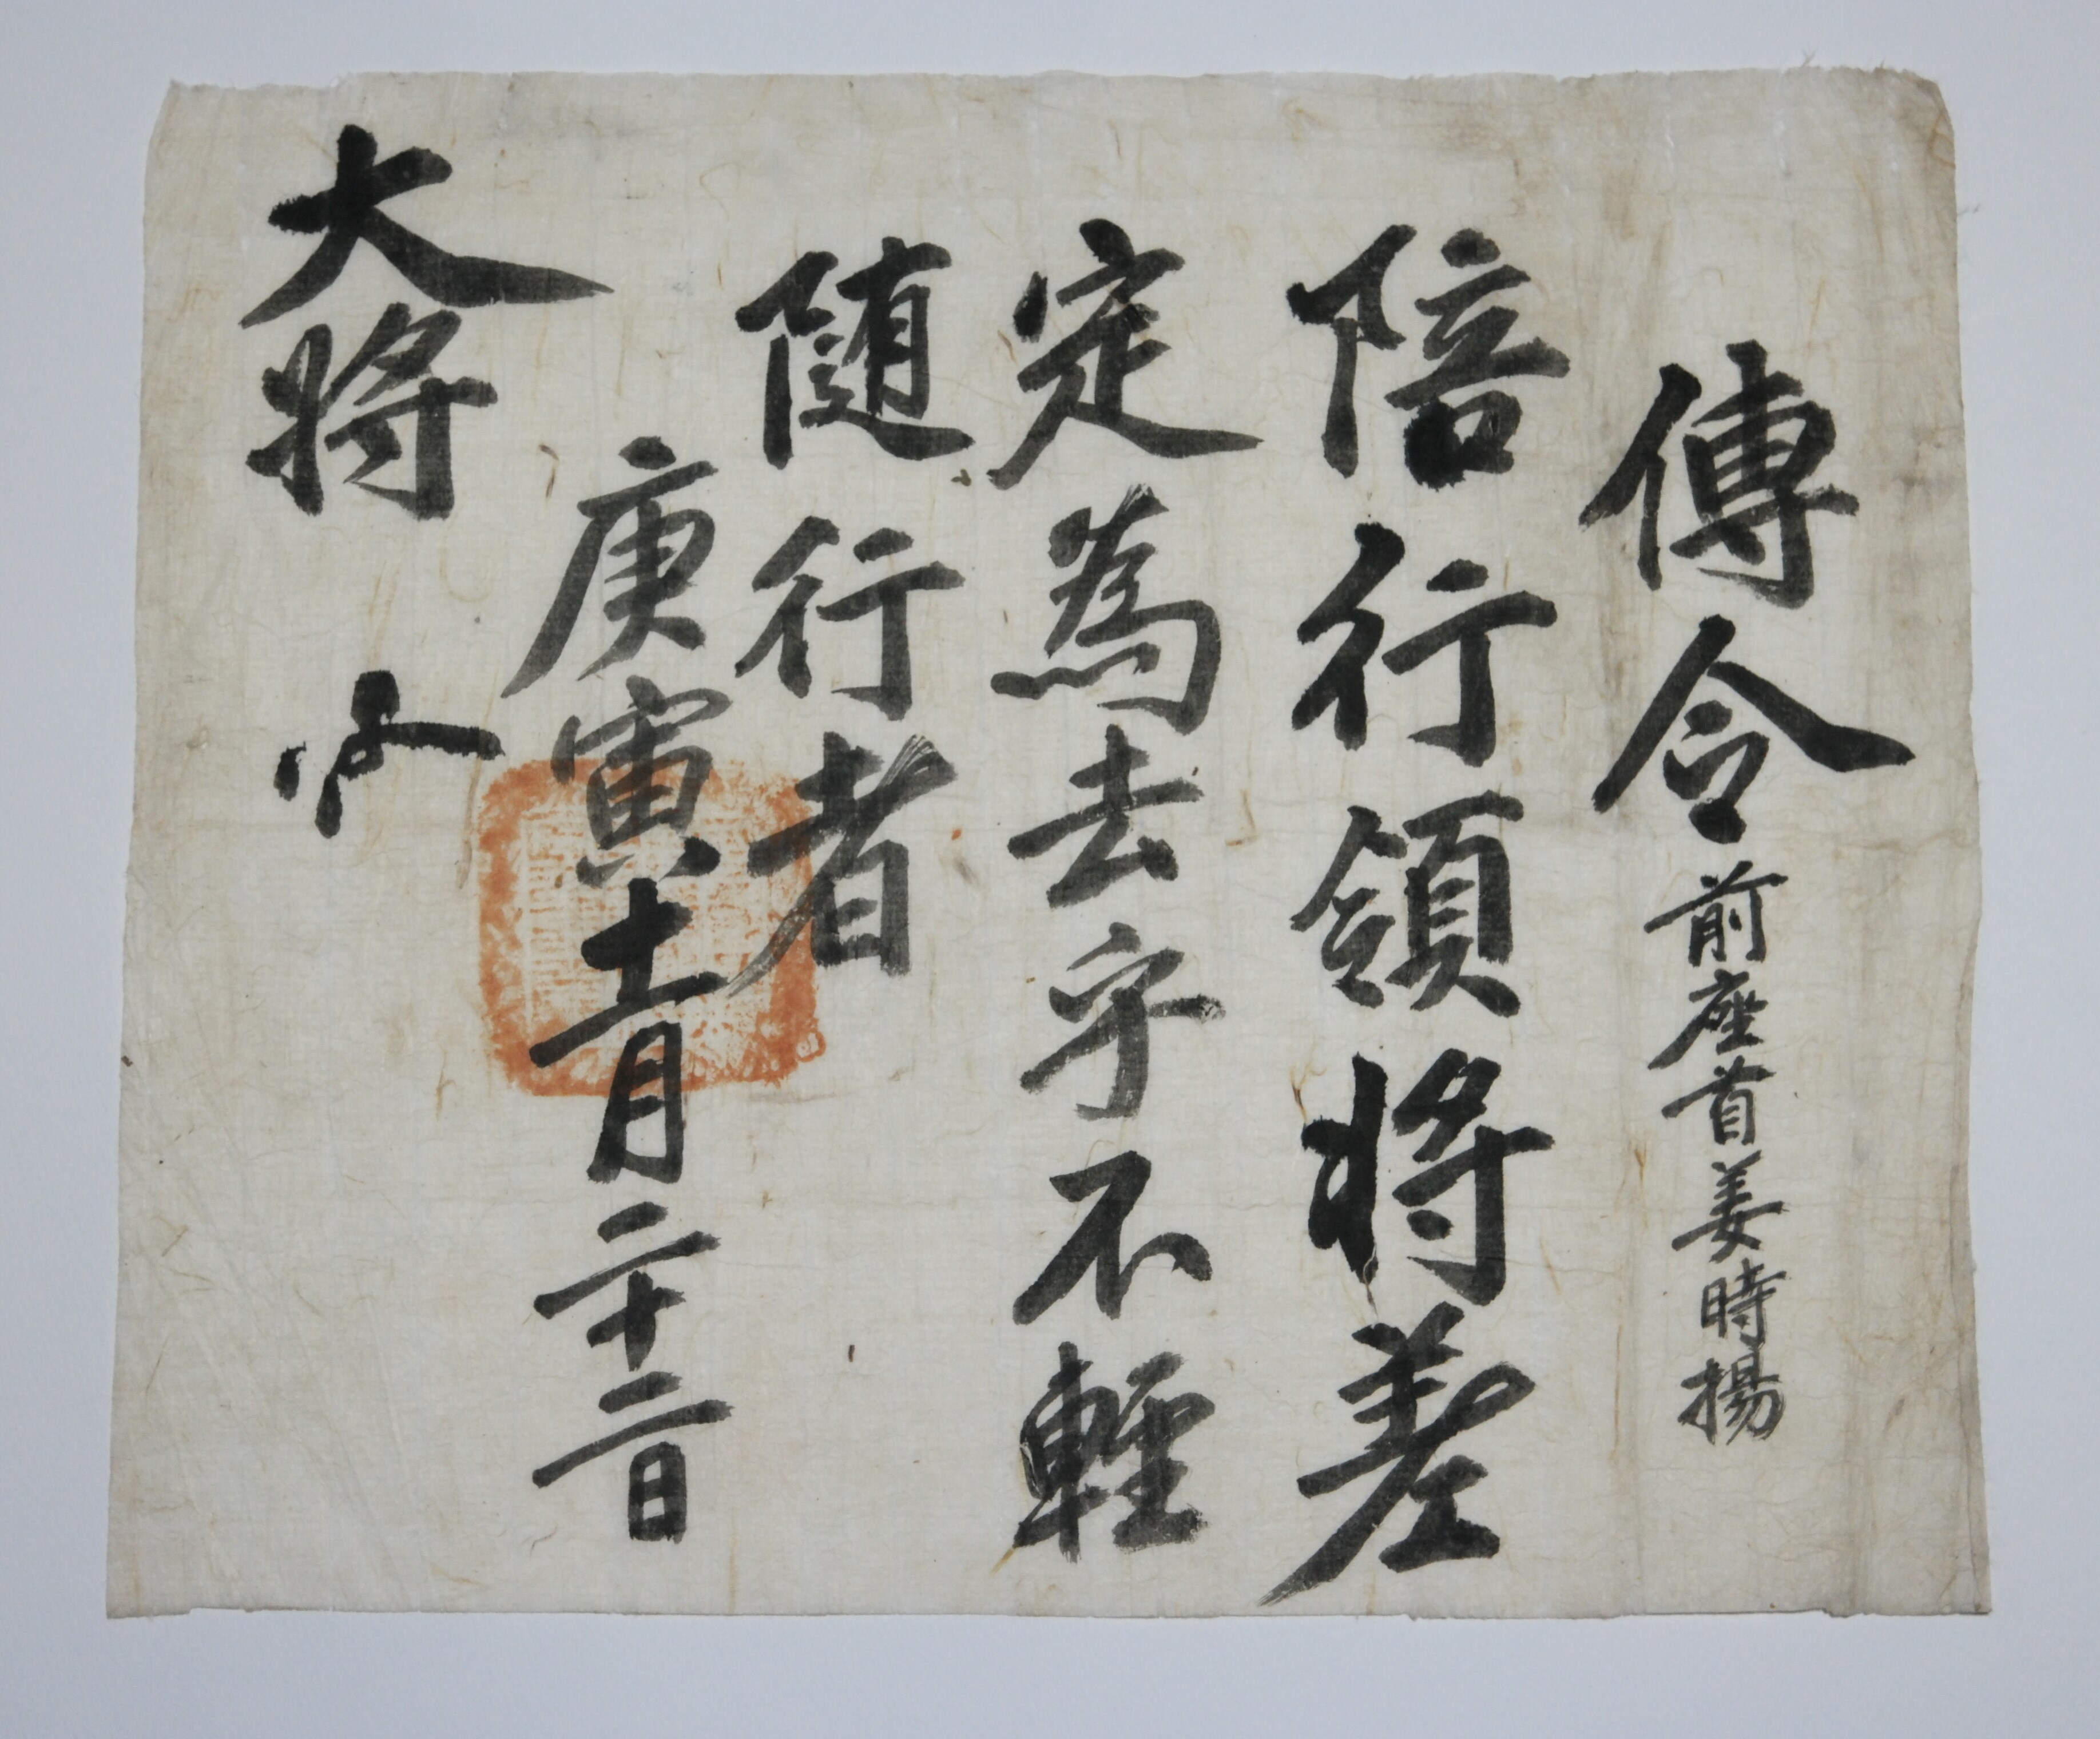 傳令 前座首姜時揚
陪行領將差
定為去乎不輕
随行者
庚寅十二月二十二日
大將